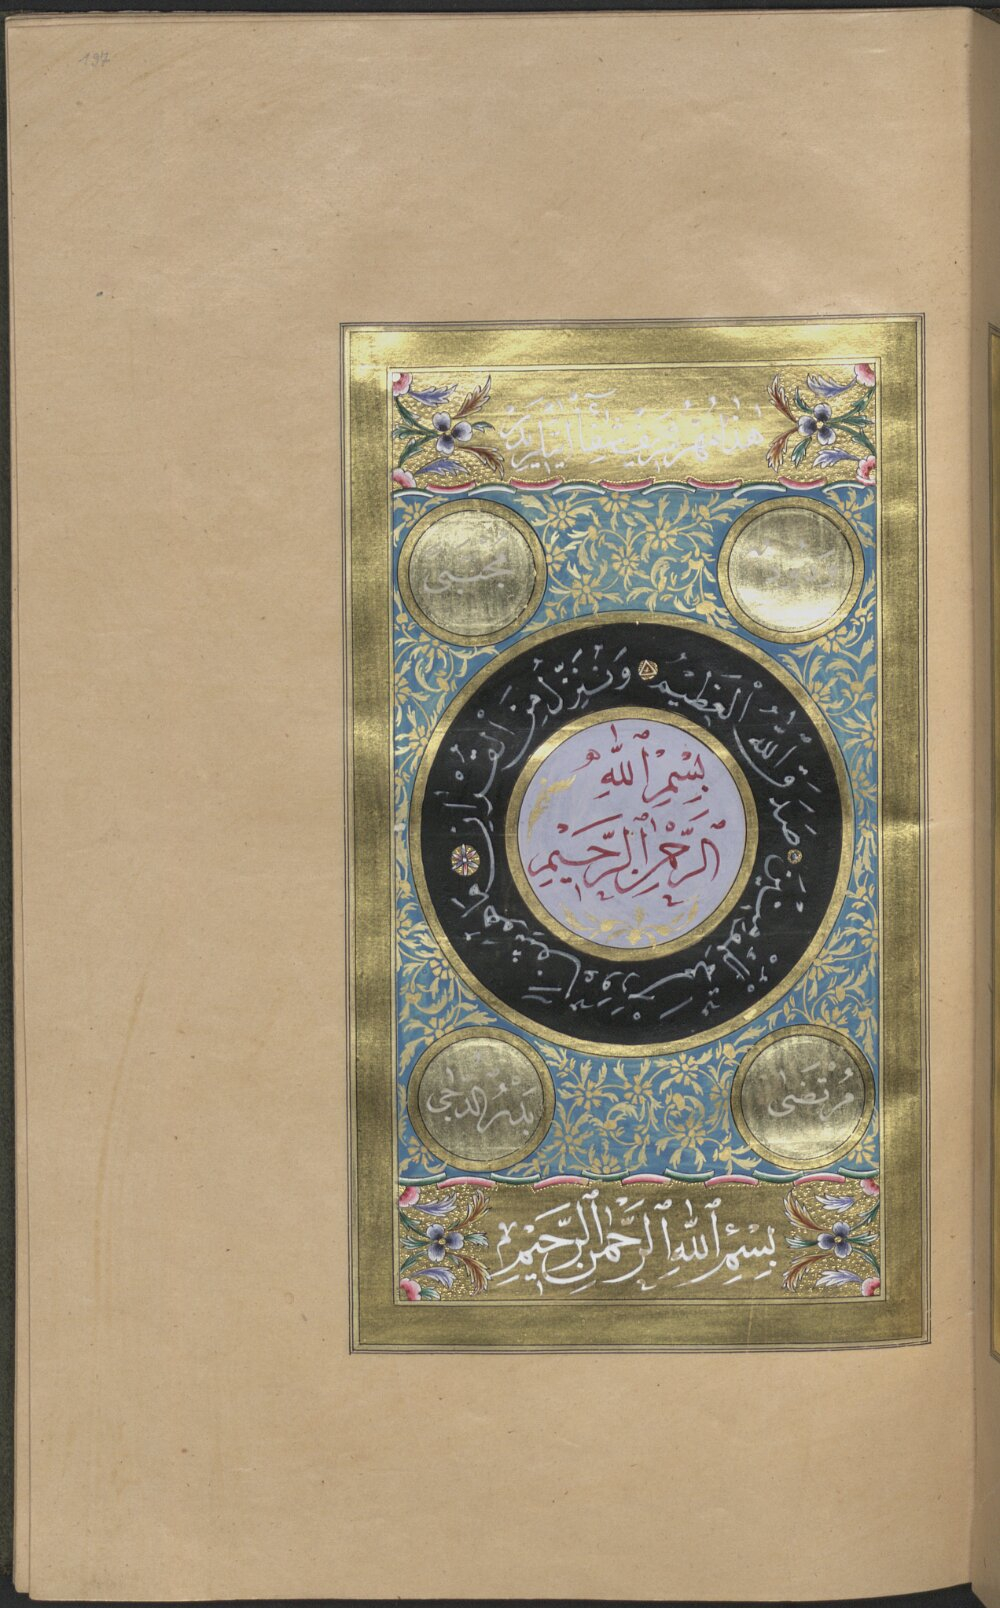 197
هذا مهر شريف
مجتبى
صَدَقَ اللهُ الْعَظِيمُ
وَنُنَزِّلُ مِنَ الْقُرْآنِ
مَا هُوَ شِفَاءٌ وَرَحْمَةٌ لِلْمُؤْمِنِينَ
بِسْمِ اللهِ
الرَّحْمٰنِ الرَّحِيمِ
مُرْتَضَى
بَدْرُ الدُّجَى
بِسْمِ اللهِ الرَّحْمٰنِ الرَّحِيمِ